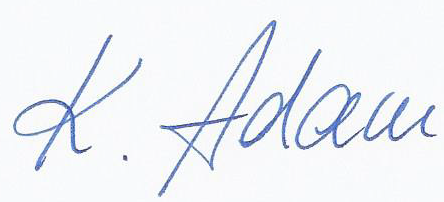 K. Adam